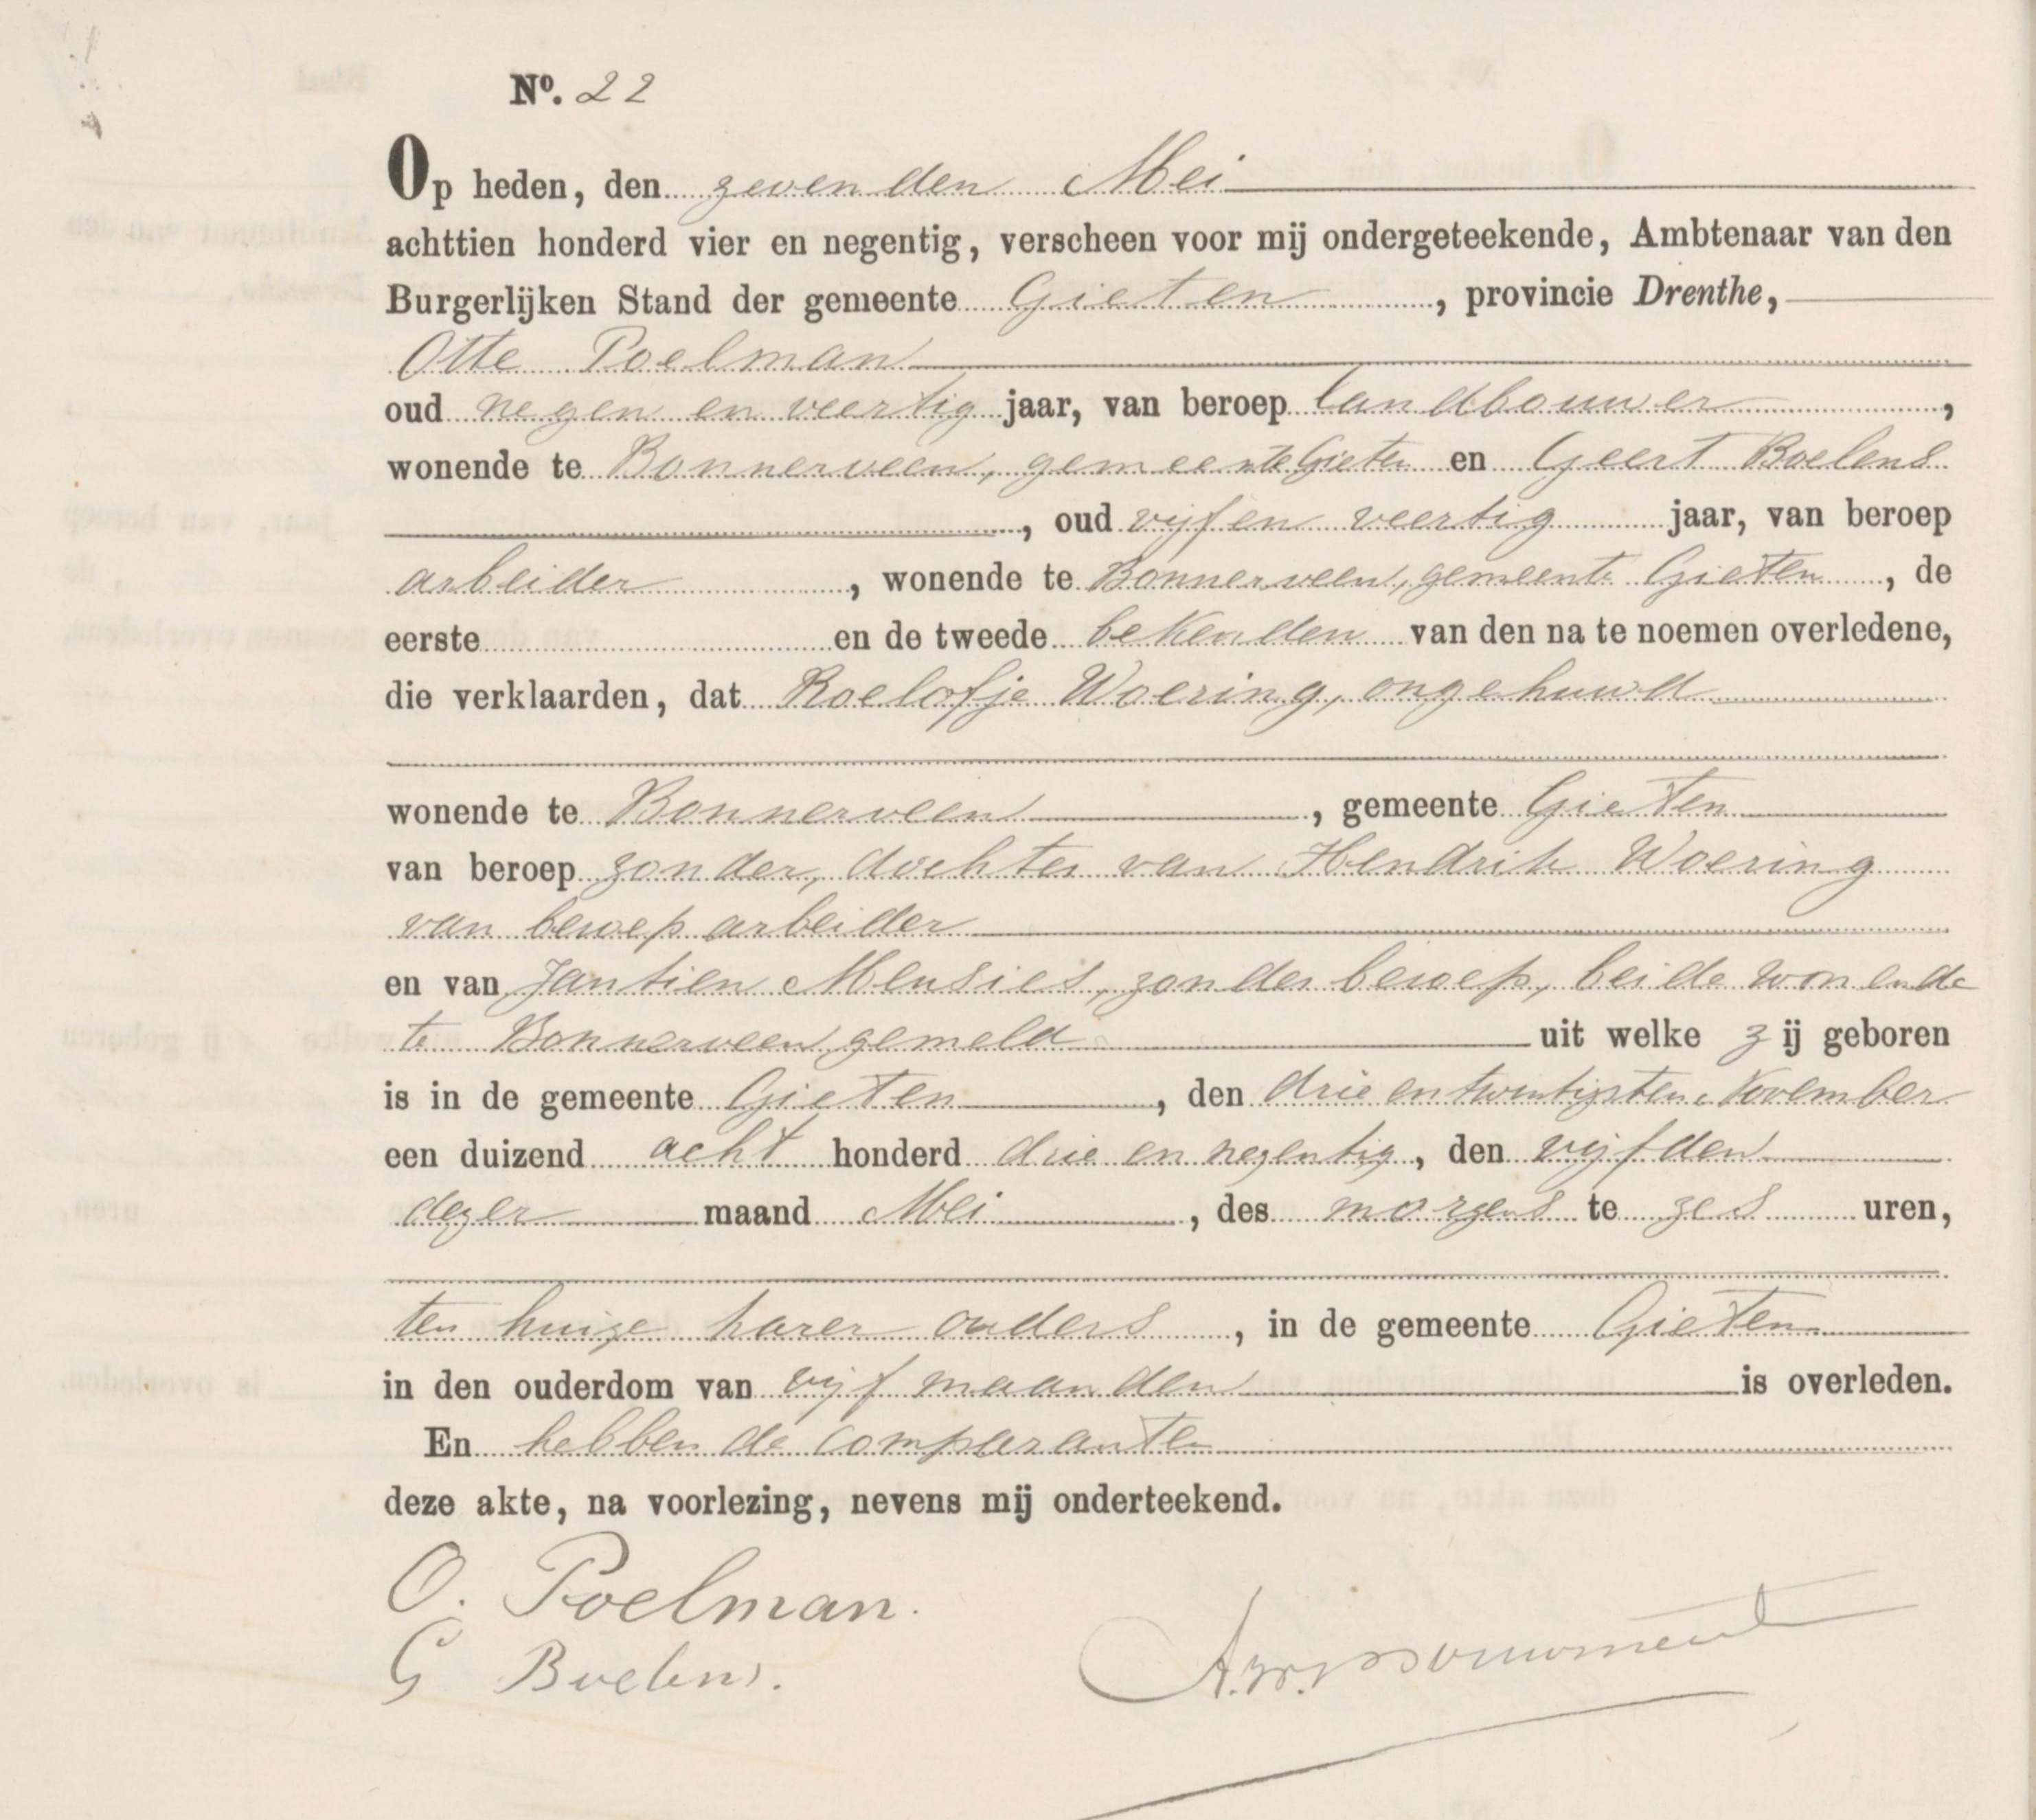 Nº. 22
Op heden, den zevenden Mei
achttien honderd vier en negentig, verscheen voor mij ondergeteekende, Ambtenaar van den
Burgerlijken Stand der gemeente Gieten, provincie Drenthe,
Otte Poelman
oud negen en veertig jaar, van beroep landbouwer,
wonende te Bonnerveen, gemeente Gieten en Geert Boelens
, oud vijf en veertig jaar, van beroep
arbeider, wonende te Bonnerveen, gemeente Gieten, de
eerste en de tweede bekenden van den na te noemen overledene,
die verklaarden, dat Roelofje Woering, ongehuwd
wonende te Bonnerveen, gemeente Gieten
van beroep zonder, dochter van Hendrik Woering
van beroep arbeider
en van Jantien Mensies, zonder beroep, beide wonende
te Bonnerveen gemeld uit welke zij geboren
is in de gemeente Gieten, den drie en twintigsten November
een duizend acht honderd drie en negentig, den vijfden
dezer maand Mei, des morgens te zes uren,
ten huize harer ouders, in de gemeente Gieten
in den ouderdom van vijf maanden is overleden.
En hebben de comparanten
deze akte, na voorlezing, nevens mij onderteekend.
O. Poelman.
G Boelens.